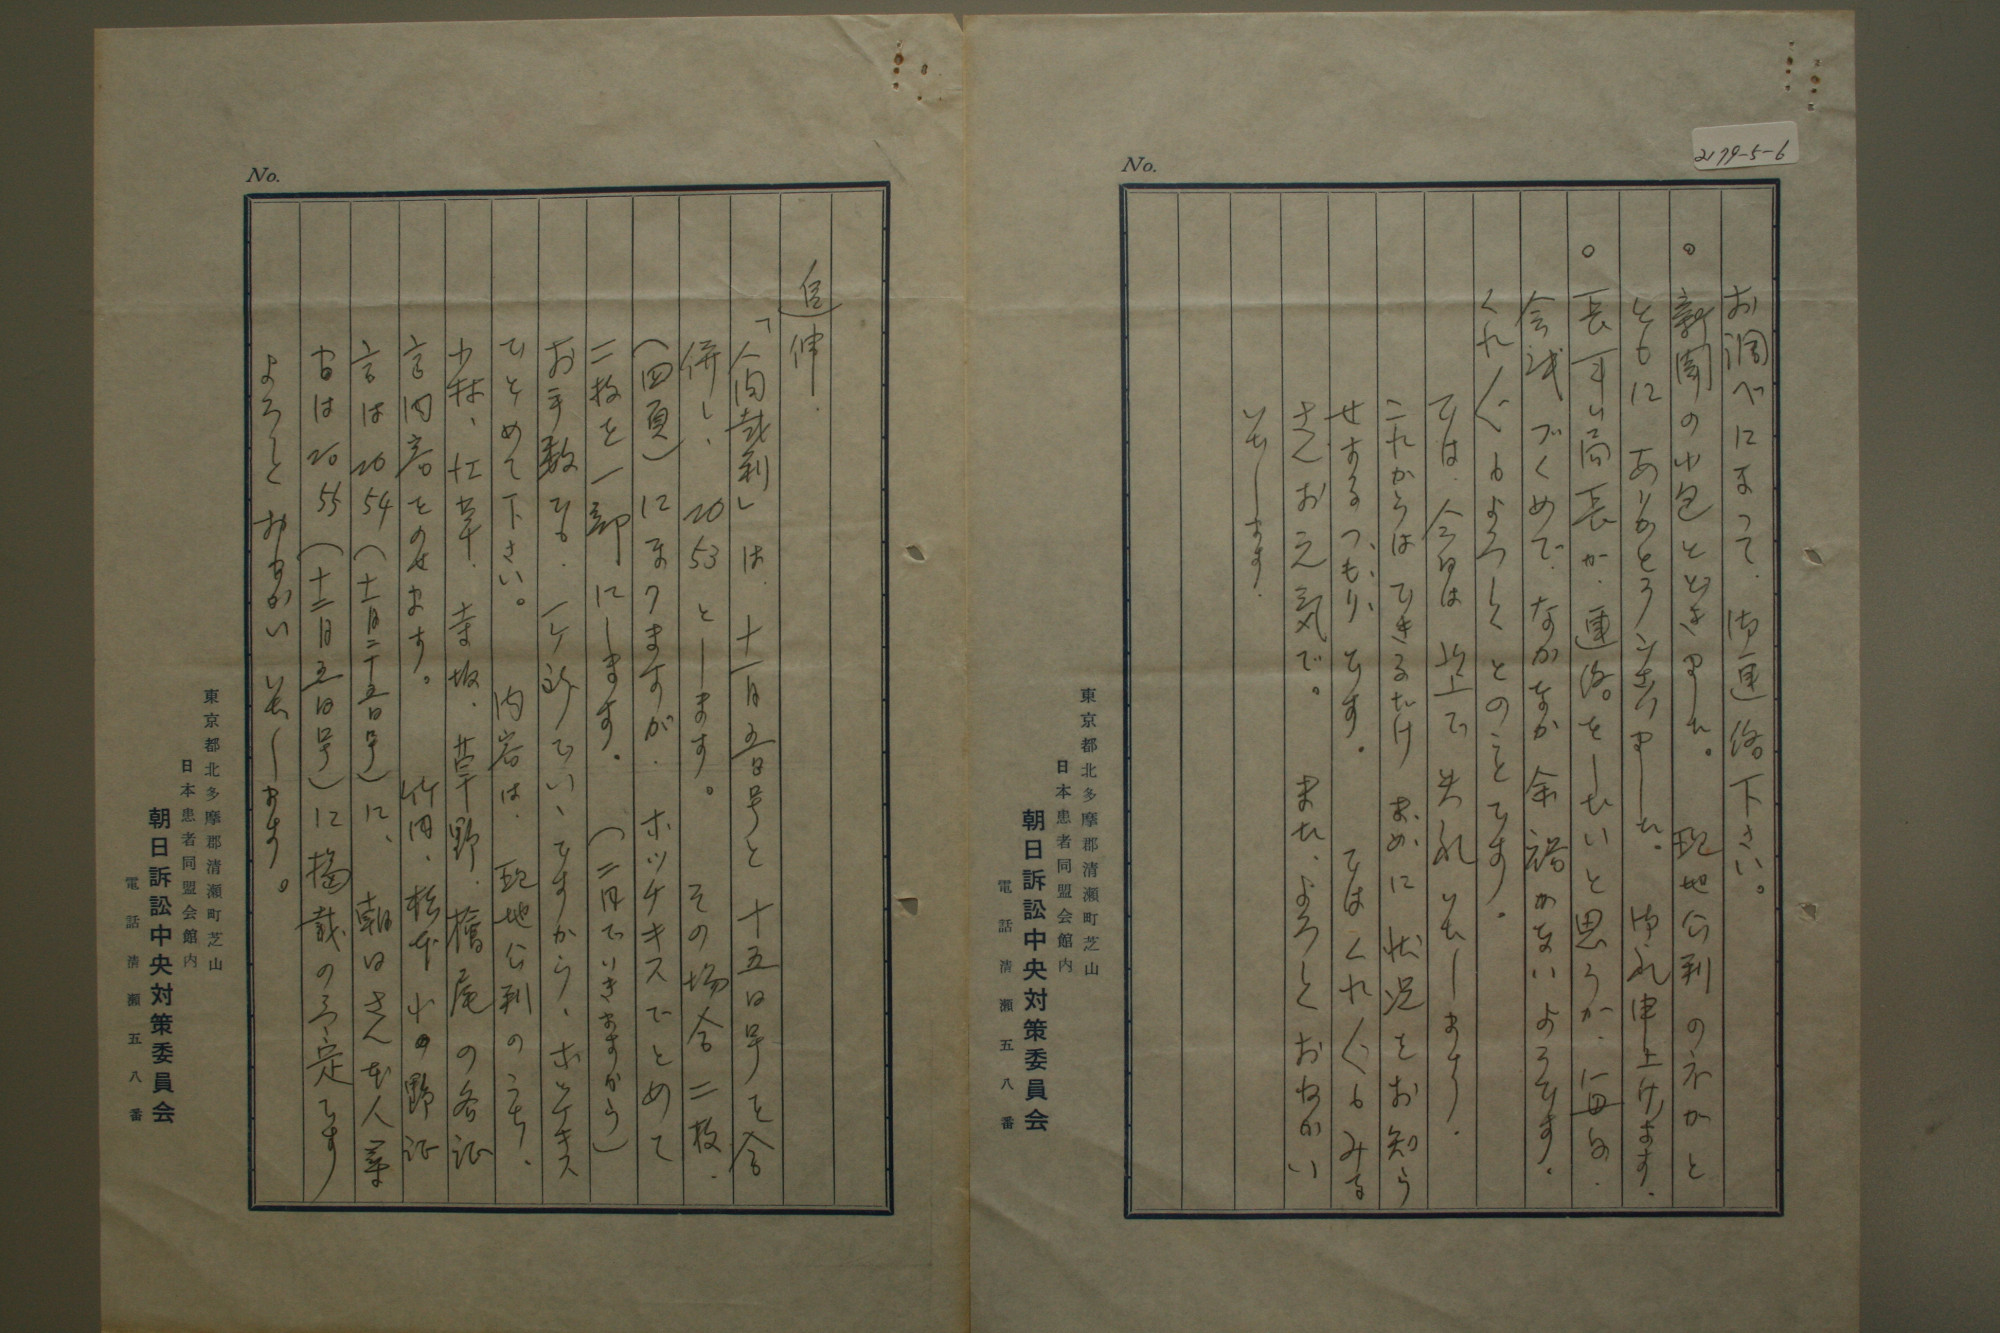 2179-5-6
No.
お調べになって、御連絡下さい。
○新聞の小包とどきました。 現地公判のネガと
ともに ありがとうございました。 御礼申上げます。
○長宏局長が、連絡をしたいと思うが、毎日、
会議づくめで、なかなか余裕がないようです。
くれぐれもよろしくとのことです。
では、今日は 以上で 失礼 いたします。
これからは できるだけ まめに 状況をお知ら
せするつもりです。 ではくれぐれもみな
さんお元気で。 また、よろしくおねがい
いたします。
東京都北多摩郡清瀬町芝山
日本患者同盟会館内
朝日訴訟中央対策委員会
電話清瀬五八番
No.
追伸.
「人間裁判」は、十一月五日号と 十五日号を合
併し、No53 とします。 その場合 二枚.
(四頁)になりますが、ホッチキスでとめて
二枚を一部 にします。 (二円でいきますから)
お手数でも、一ヶ所でいいですから、ホッチキス
でとめて下さい。 内容は、現地公判のうち、
小林、仁草、寺坂、草野、檜尾 の各証
言内容をのせます。 竹内、松本、小の野証
言は No54(十一月二十五日号)に、 朝日さん本人尋
問は No55(十二月五日号)に掲載の予定です
よろしく おねがい いたします。
東京都北多摩郡清瀬町芝山
日本患者同盟会館内
朝日訴訟中央対策委員会
電話清瀬五八番